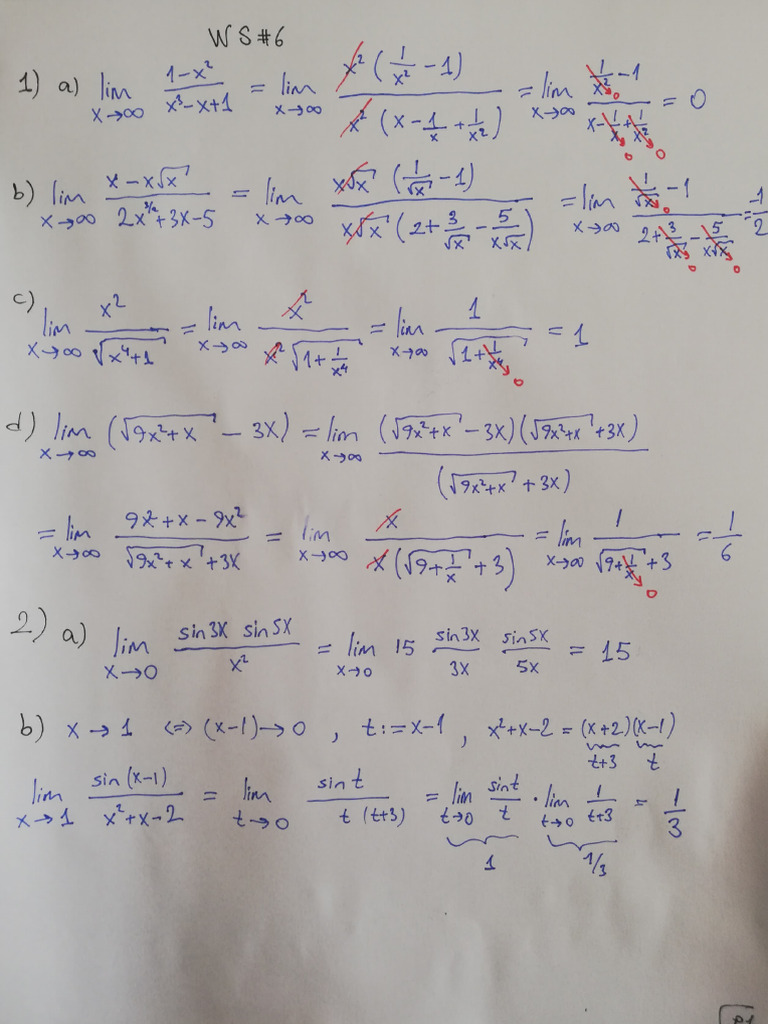 WS#6
1) a) lim x→∞ (1-x²)/(x³-x+1) = lim x→∞ x²(1/x² - 1)/x²(x - 1/x + 1/x²) = lim x→∞ (1/x² →0 - 1)/(x - 1/x →0 + 1/x² →0) = 0
b) lim x→∞ (x - x√x)/(2x^(3/2)+3x-5) = lim x→∞ x√x (1/√x - 1)/x√x (2 + 3/√x - 5/x√x) = lim x→∞ (1/√x →0 - 1)/(2 + 3/√x →0 - 5/x√x →0) = -1/2
c) lim x→∞ x²/√(x⁴+1) = lim x→∞ x²/x²√(1+1/x⁴) = lim x→∞ 1/√(1+1/x⁴ →0) = 1
d) lim x→∞ (√(9x²+x) - 3x) = lim x→∞ (√(9x²+x) - 3x)(√(9x²+x) + 3x)/(√(9x²+x) + 3x)
= lim x→∞ (9x²+x-9x²)/(√(9x²+x) + 3x) = lim x→∞ x/x(√(9+1/x) + 3) = lim x→∞ 1/(√(9+1/x →0) + 3) = 1/6
2) a) lim x→0 sin3x sin5x/x² = lim x→0 15 sin3x/3x sin5x/5x = 15
b) x→1 <=> (x-1)→0 , t:=x-1 , x²+x-2 = (x+2)(x-1)
t+3 t
lim x→1 sin(x-1)/(x²+x-2) = lim t→0 sint/t(t+3) = lim t→0 sint/t · lim t→0 1/(t+3) = 1/3
1 1/3